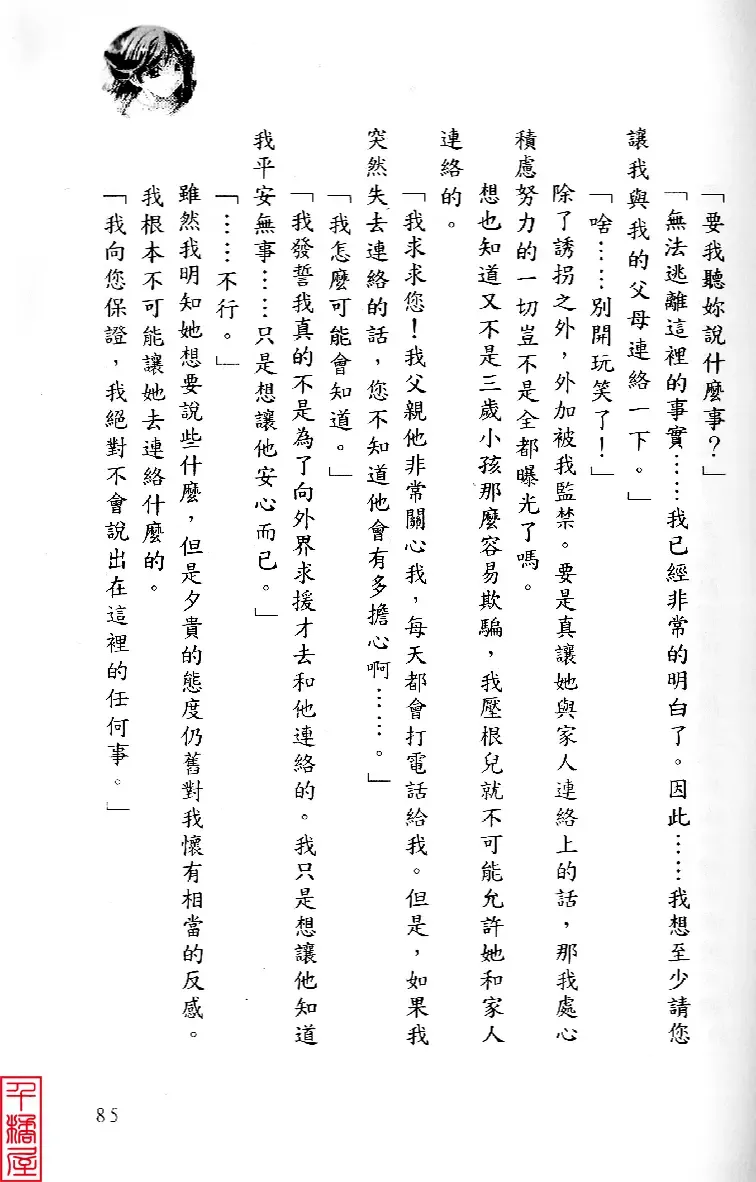 「要我聽妳說什麼事？」
「無法逃離這裡的事實……我已經非常的明白了。因此……我想至少請您
讓我與我的父母連絡一下。」
「啥……別開玩笑了！」
除了誘拐之外，外加被我監禁。要是真讓她與家人連絡上的話，那我處心
積慮努力的一切豈不是全都曝光了嗎。
想也知道又不是三歲小孩那麼容易欺騙，我壓根兒就不可能允許她和家人
連絡的。
「我求求您！我父親他非常關心我，每天都會打電話給我。但是，如果我
突然失去連絡的話，您不知道他會有多擔心啊……。」
「我怎麼可能會知道。」
「我發誓我真的不是為了向外界求援才去和他連絡的。我只是想讓他知道
我平安無事……只是想讓他安心而已。」
「……不行。」
雖然我明知她想要說些什麼，但是夕貴的態度仍舊對我懷有相當的反感。
我根本不可能讓她去連絡什麼的。
「我向您保證，我絕對不會說出在這裡的任何事。」
85
千橘屋